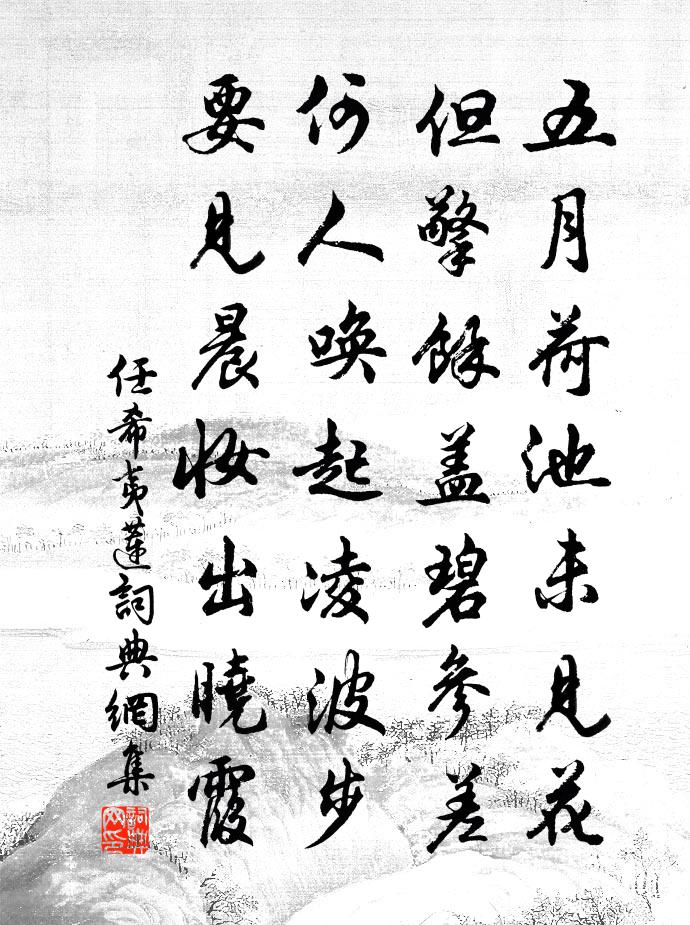 五月荷池未見花
但擎餘蓋碧參差
何人喚起凌波步
要見晨妝出曉霞
任希夷蓮詞典網集
詞典
网印